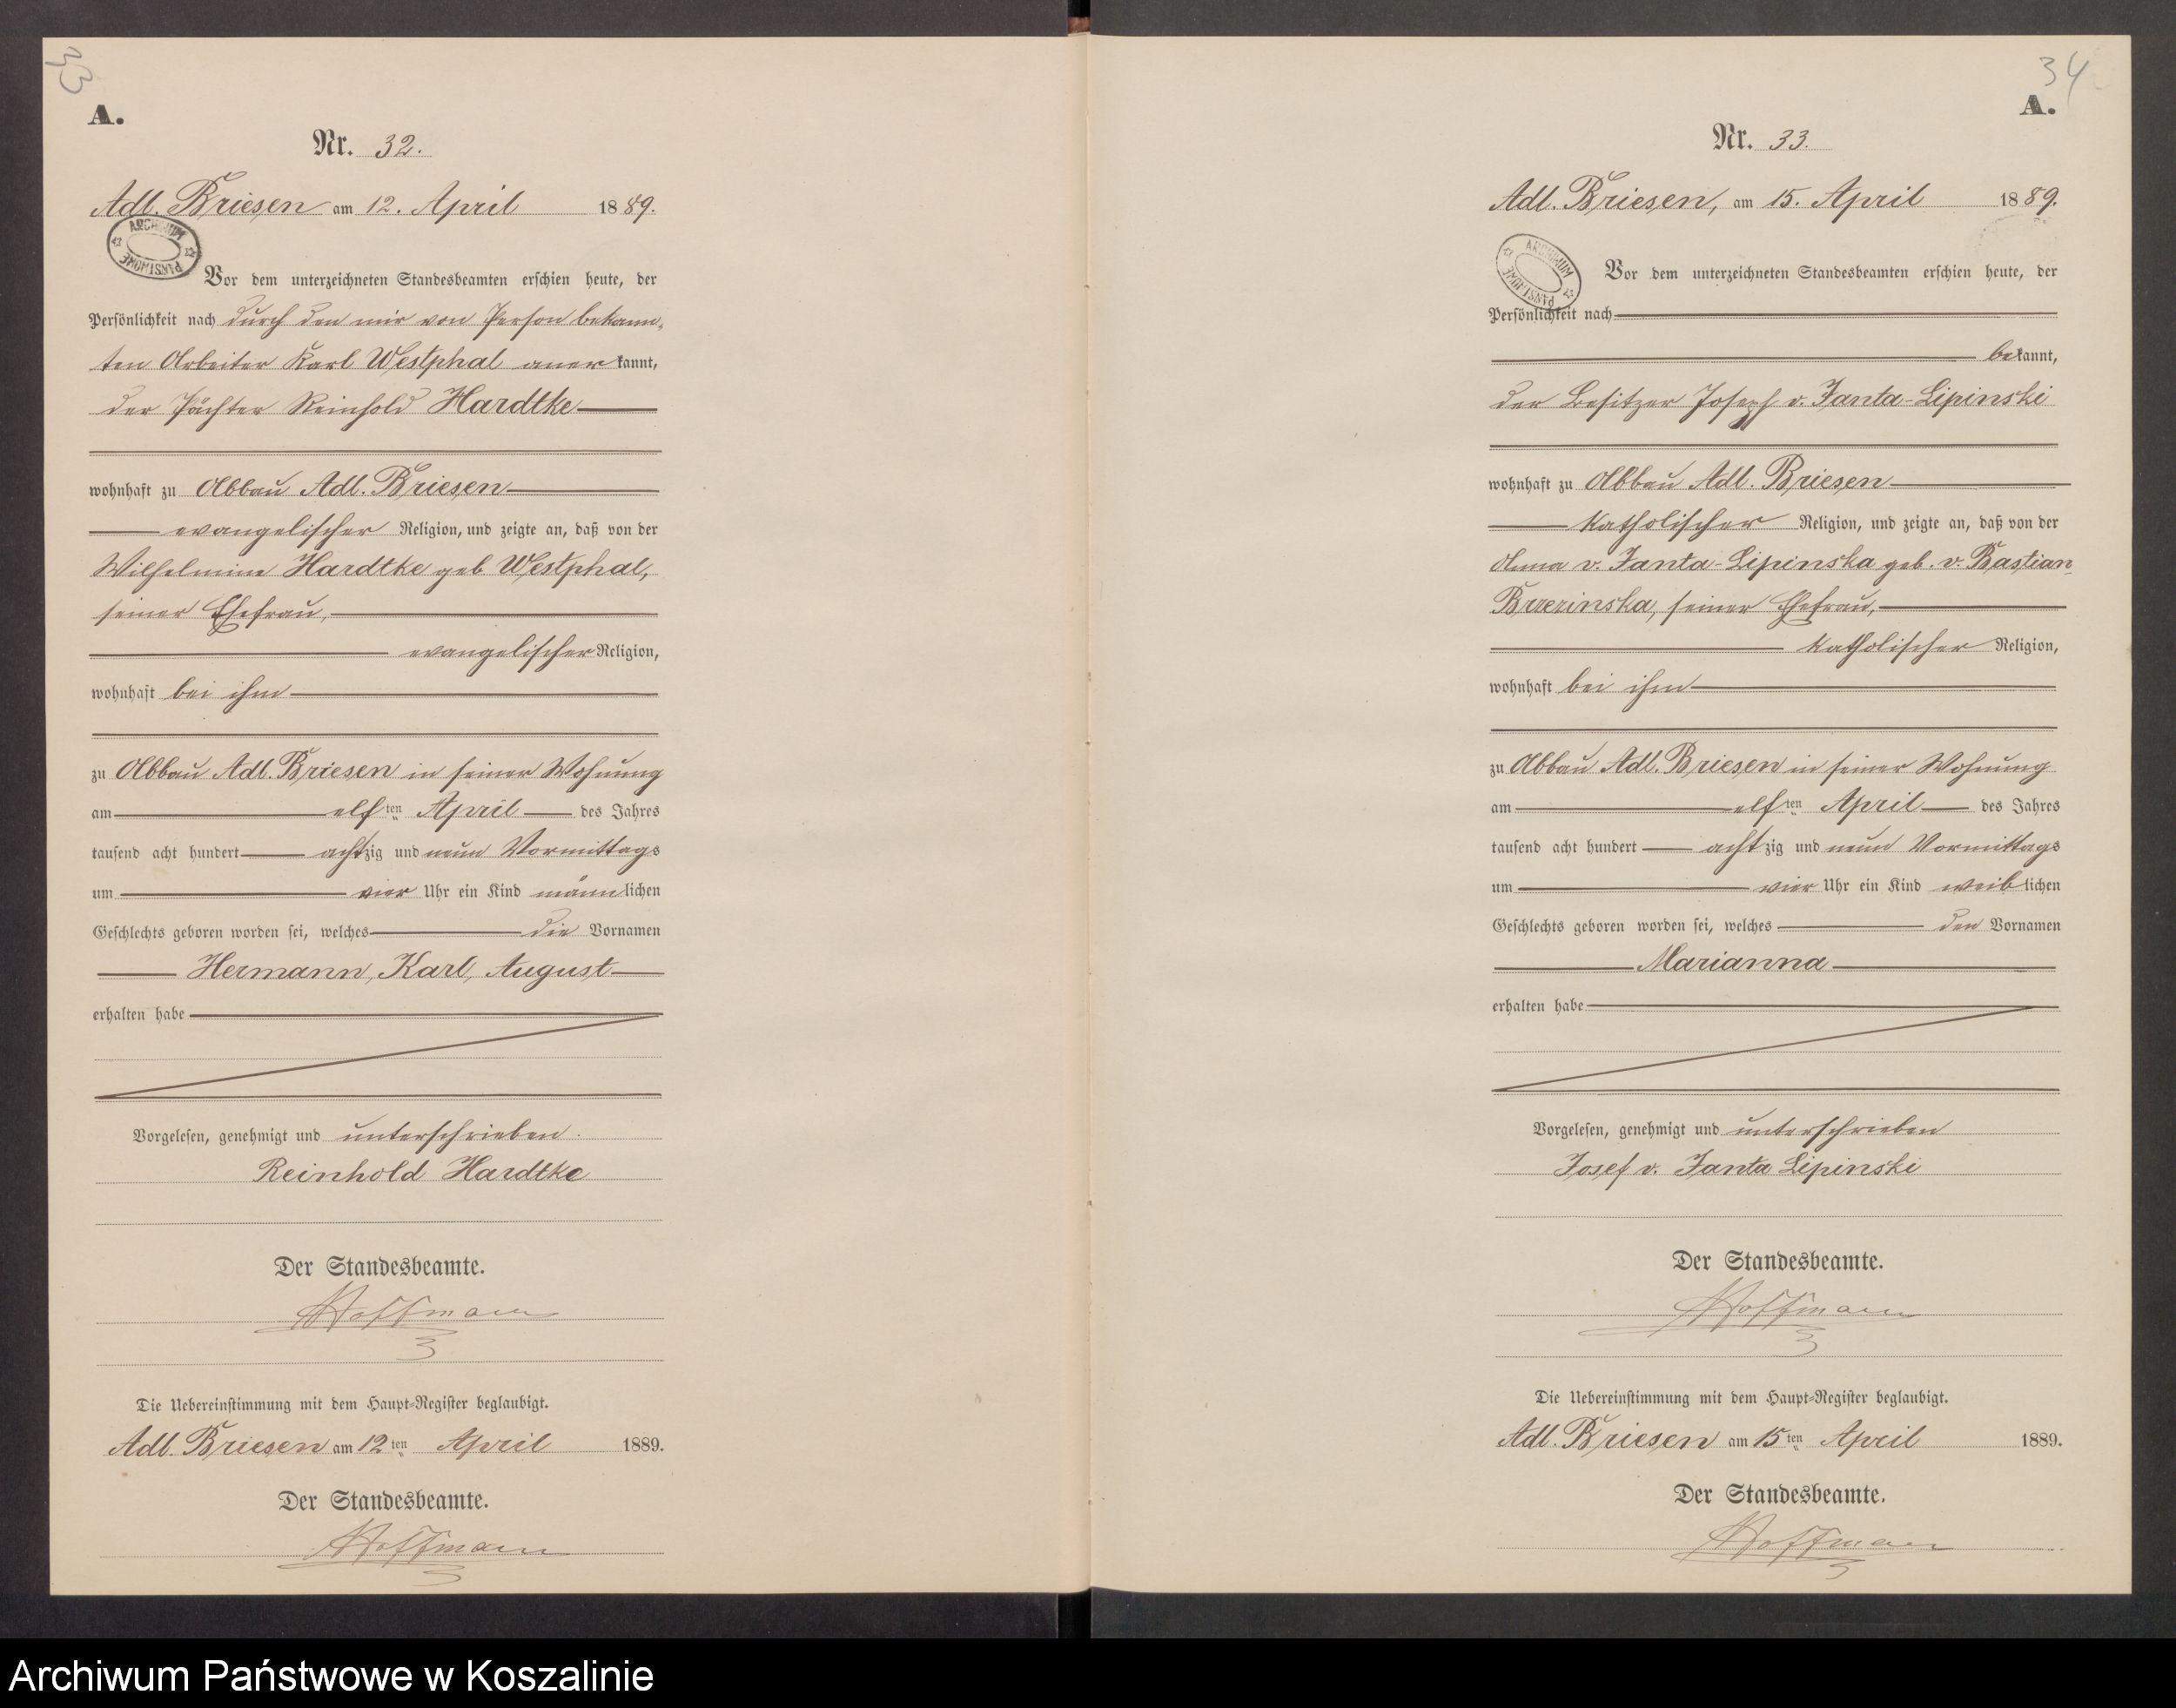 33
A.
Nr. 32.
Adl. Briesen am 12. April 1889.
ARCHIWUM PAŃSTWOWE
Vor dem unterzeichneten Standesbeamten erschien heute, der
Persönlichkeit nach durch den mir von Person bekann-
ten Arbeiter Karl Westphal anerkannt,
der Pächter Reinhold Hardtke
wohnhaft zu Abbau Adl. Briesen
evangelischer Religion, und zeigte an, daß von der
Wilhelmine Hardtke geb Westphal,
seiner Ehefrau,
evangelischer Religion,
wohnhaft bei ihm
zu Abbau Adl. Briesen in seiner Wohnung
am elften April des Jahres
tausend acht hundert achtzig und neun Vormittags
um vier Uhr ein Kind männlichen
Geschlechts geboren worden sei, welches die Vornamen
Hermann, Karl, August
erhalten habe
Vorgelesen, genehmigt und unterschrieben.
Reinhold Hardtke
Der Standesbeamte.
Hoffmann
Die Uebereinstimmung mit dem Haupt-Register beglaubigt.
Adl. Briesen am 12ten April 1889.
Der Standesbeamte.
Hoffmann
34
A.
Nr. 33.
Adl. Briesen, am 15. April 1889.
ARCHIWUM PAŃSTWOWE
Vor dem unterzeichneten Standesbeamten erschien heute, der
Persönlichkeit nach
bekannt,
der Besitzer Joseph v. Janta-Lipinski
wohnhaft zu Abbau Adl. Briesen
katholischer Religion, und zeigte an, daß von der
Anna v. Janta-Lipinska geb. v. Bastian-
Brzezinska, seiner Ehefrau,
katholischer Religion,
wohnhaft bei ihm
zu Abbau Adl. Briesen in seiner Wohnung
am elften April des Jahres
tausend acht hundert achtzig und neun Vormittags
um vier Uhr ein Kind weiblichen
Geschlechts geboren worden sei, welches den Vornamen
Marianna
erhalten habe
Vorgelesen, genehmigt und unterschrieben
Josef v. Janta Lipinski
Der Standesbeamte.
Hoffmann
Die Uebereinstimmung mit dem Haupt-Register beglaubigt.
Adl. Briesen am 15ten April 1889.
Der Standesbeamte.
Hoffmann
Archiwum Państwowe w Koszalinie